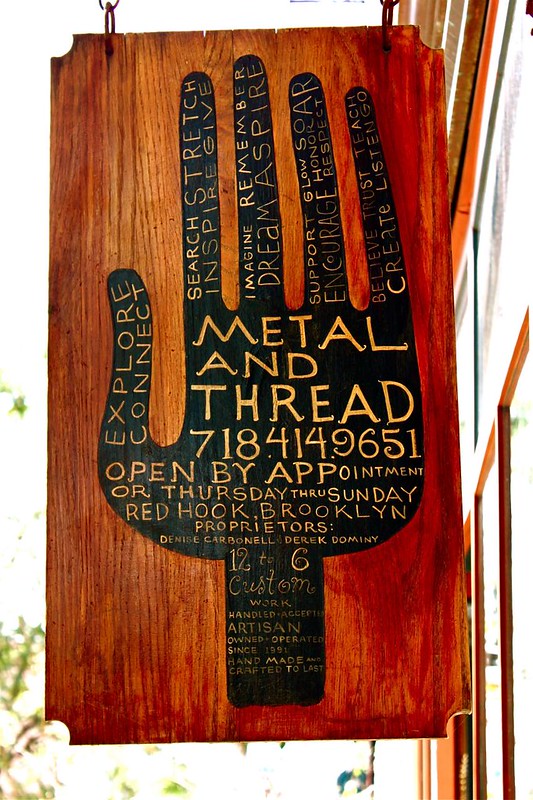 EXPLORE
CONNECT
SEARCH STRETCH
INSPIRE GIVE
IMAGINE REMEMBER
DREAM ASPIRE
SUPPORT GLOW SOAR
ENCOURAGE HONOR RESPECT
BELIEVE TRUST TEACH
CREATE LISTEN GO
METAL
AND
THREAD
718.414.9651
OPEN BY APPOINTMENT
OR THURSDAY THRU SUNDAY
RED HOOK, BROOKLYN
PROPRIETORS:
DENISE CARBONELL & DEREK DOMINY
12 to 6
Custom
WORK
HANDLED
ARTISAN
OWNED + OPERATED
SINCE 1991
HAND MADE AND
CRAFTED TO LAST